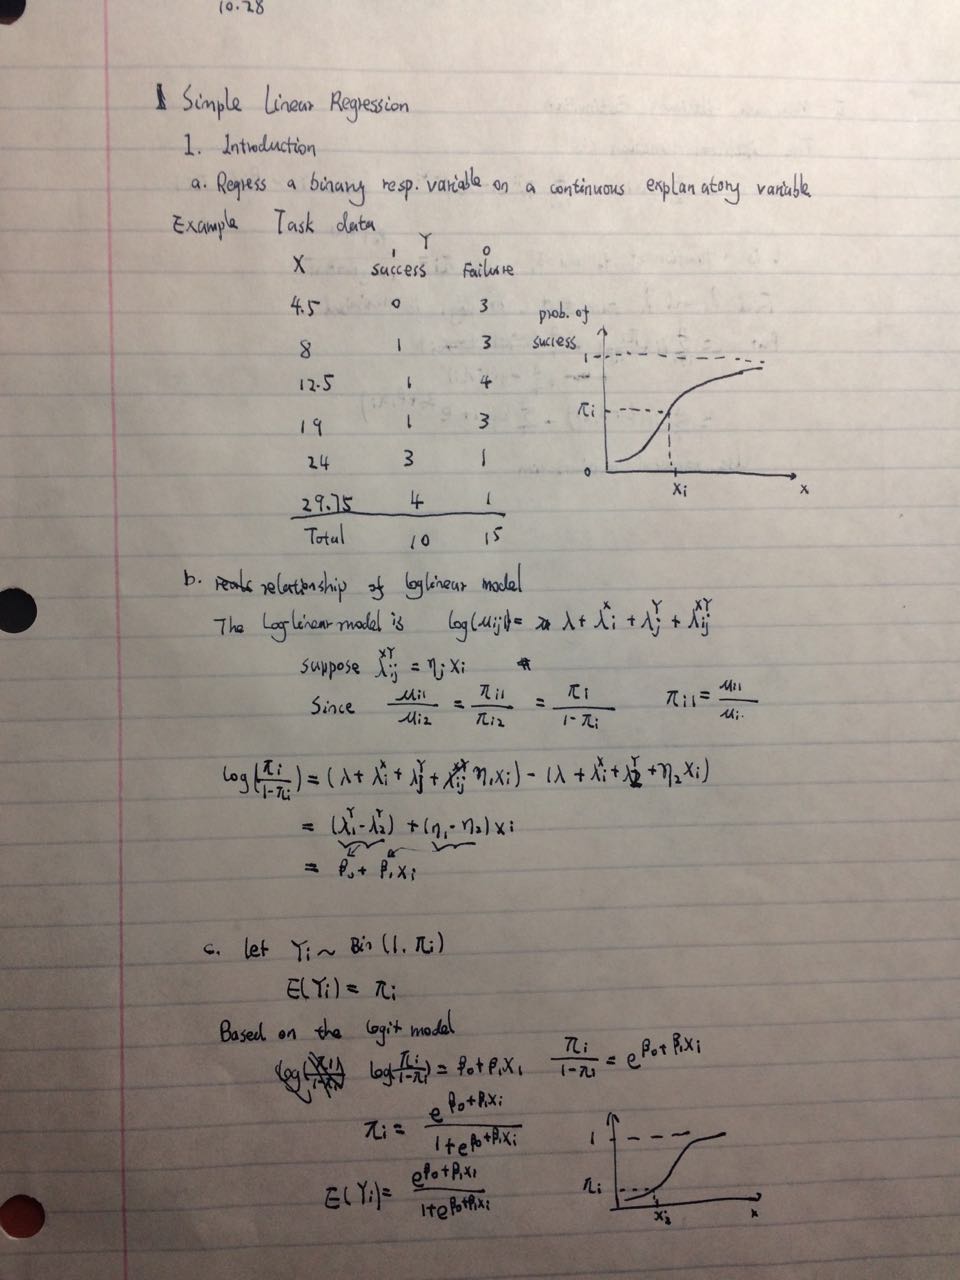 10.28
1 Simple Linear Regression
1. Introduction
a. Regress a binary resp. variable on a continuous explanatory variable
Example Task data
Y
X 1 success 0 Failure
4.5 0 3
8 1 3
12.5 1 4
19 1 3
24 3 1
29.75 4 1
Total 10 15
prob. of
success
1
πi
0
xi x
b. relationship of loglinear model
The Loglinear model is log(μij) = λ + λ_i^X + λ_j^Y + λ_ij^XY
suppose λ_ij^XY = ηj xi
Since μi1/μi2 = πi1/πi2 = πi/(1-πi) πi1 = μi1/μi.
log(πi/(1-πi)) = (λ + λ_i^X + λ_1^Y + η1 xi) - (λ + λ_i^X + λ_2^Y + η2 xi)
= (λ_1^Y - λ_2^Y) + (η1 - η2) xi
= β0 + β1 xi
c. let Yi ~ Bin (1, πi)
E(Yi) = πi
Based on the logit model
log(πi/(1-πi)) = β0 + β1 xi πi/(1-πi) = e^(β0 + β1 xi)
πi = e^(β0+β1 xi)/(1+e^(β0+β1 xi))
E(Yi) = e^(β0+β1 xi)/(1+e^(β0+β1 xi))
1
πi
xi x